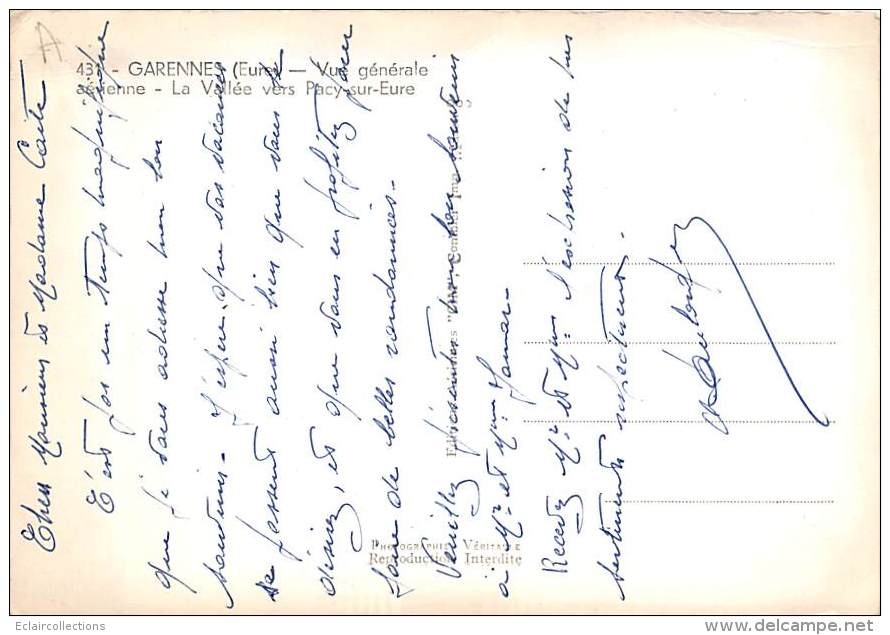 437 - GARENNES (Eure) — Vue générale
aérienne - La Vallée vers Pacy-sur-Eure
Cher Monsieur et Madame
C'est par un temps magnifique
que je vous adresse mon bon
souvenir - J'espère que vos vacances
se passent aussi bien que vous le
désirez, et que vous en profitez pour
faire de belles randonnées -
Veuillez présenter mon bon souvenir
à Mr et Mme
Recevez Mr et Mme l'expression de mes
sentiments respectueux.
Combier Imp.
PHOTOGRAPHIE VÉRITABLE
Reproduction Interdite
Eclaircollections
www.delcampe.net